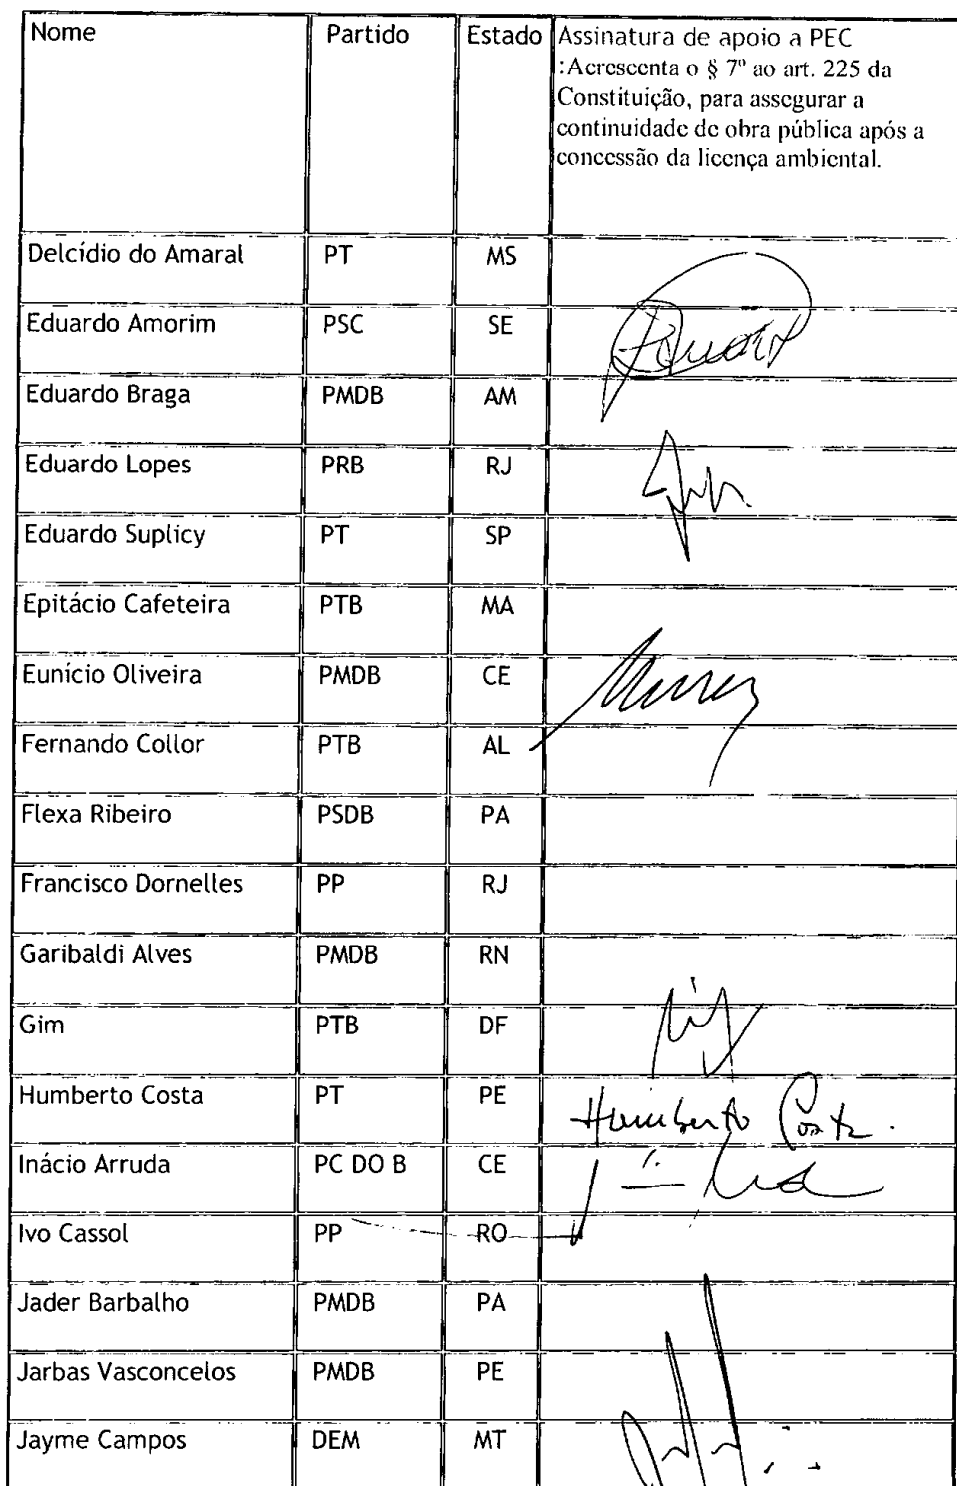 Nome Partido Estado Assinatura de apoio a PEC
:Acrescenta o § 7º ao art. 225 da
Constituição, para assegurar a
continuidade de obra pública após a
concessão da licença ambiental.
Delcídio do Amaral PT MS
Eduardo Amorim PSC SE
Eduardo Braga PMDB AM
Eduardo Lopes PRB RJ
Eduardo Suplicy PT SP
Epitácio Cafeteira PTB MA
Eunício Oliveira PMDB CE
Fernando Collor PTB AL
Flexa Ribeiro PSDB PA
Francisco Dornelles PP RJ
Garibaldi Alves PMDB RN
Gim PTB DF
Humberto Costa PT PE Humberto Costa.
Inácio Arruda PC DO B CE
Ivo Cassol PP RO
Jader Barbalho PMDB PA
Jarbas Vasconcelos PMDB PE
Jayme Campos DEM MT